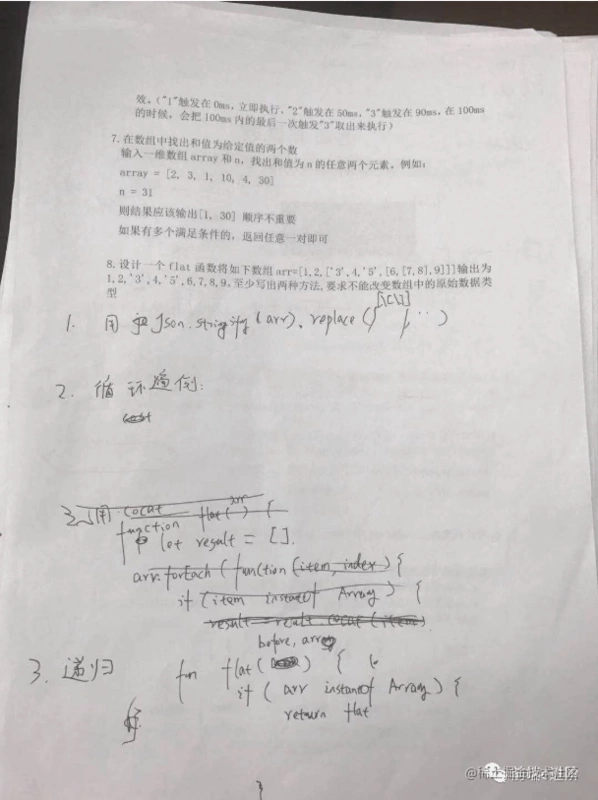 效。("1"触发在 0ms, 立即执行, "2"触发在 50ms, "3"触发在 90ms, 在 100ms
的时候, 会把 100ms 内的最后一次触发"3"取出来执行)
7. 在数组中找出和值为给定值的两个数
输入一维数组 array 和 n, 找出和值为 n 的任意两个元素。例如:
array = [2, 3, 1, 10, 4, 30]
n = 31
则结果应该输出[1, 30] 顺序不重要
如果有多个满足条件的, 返回任意一对即可
8. 设计一个 flat 函数将如下数组 arr=[1,2,['3',4,'5',[6,[7,8],9]]]输出为
1,2,'3',4,'5',6,7,8,9, 至少写出两种方法, 要求不能改变数组中的原始数据类
型
1. 用 Json.stringify(arr).replace(/[\[\]]/, '')
2. 循环遍例:
3. 用 cocat flat(arr) {
function
let result = [].
arr.forEach(function(item, index) {
if (item instanceof Array) {
result = result.cocat(item)
before, array
3. 递归 fun flat( ) {
if (arr instanceof Array) {
return flat
3